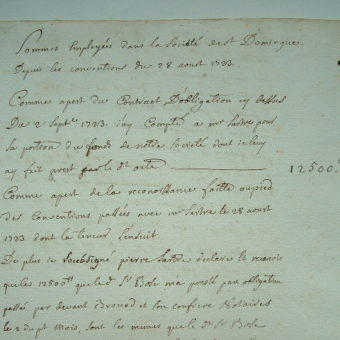 Sommes Employées dans la Société de St Domingue
Depuis les conventions du 28 aoust 1723.
Comme apert du Contract D'obligation cy dessus
Du 2 Septre 1723. j'ay Compté a mr Sartre pour
sa portion du fonds de notre Société dont je luy
ay fait prest par le dt acte 12500
Comme apert de la reconoissance faitte au pied
des Conventions passées avec mr Sartre le 28 aoust
1723 dont la teneur Ensuit
De plus je soubsigné pierre Sartre declare et reconois
que les 12500ᵗᵗ que le dt Sr Bose ma presté par obligation
passée par devant Bronod et son confrere Notaires
le 2 du pt Mois, sont les memes que le dt Sr Bose